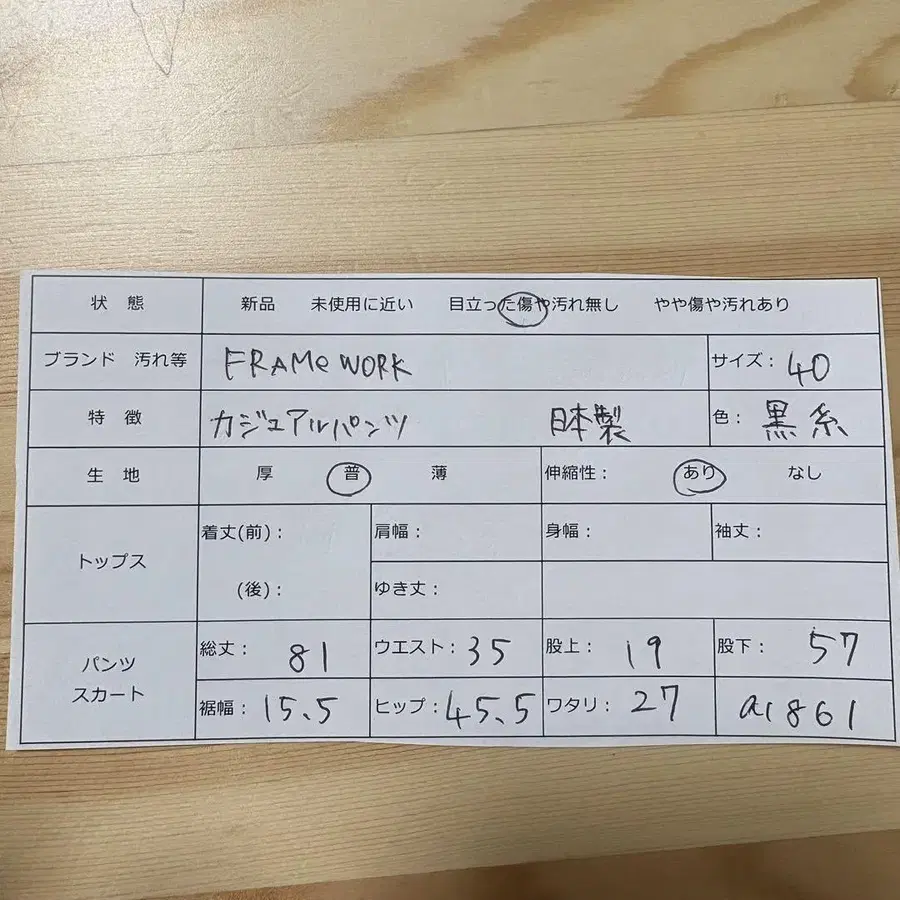 状 態 新品 未使用に近い 目立った傷や汚れ無し やや傷や汚れあり
ブランド 汚れ等 FRAMe WORK サイズ: 40
特 徴 カジュアルパンツ 日本製 色: 黒系
生 地 厚 普 薄 伸縮性: あり なし
トップス 着丈(前): 肩幅: 身幅: 袖丈:
(後): ゆき丈:
パンツ スカート 総丈: 81 ウエスト: 35 股上: 19 股下: 57
裾幅: 15.5 ヒップ: 45.5 ワタリ: 27 a1861